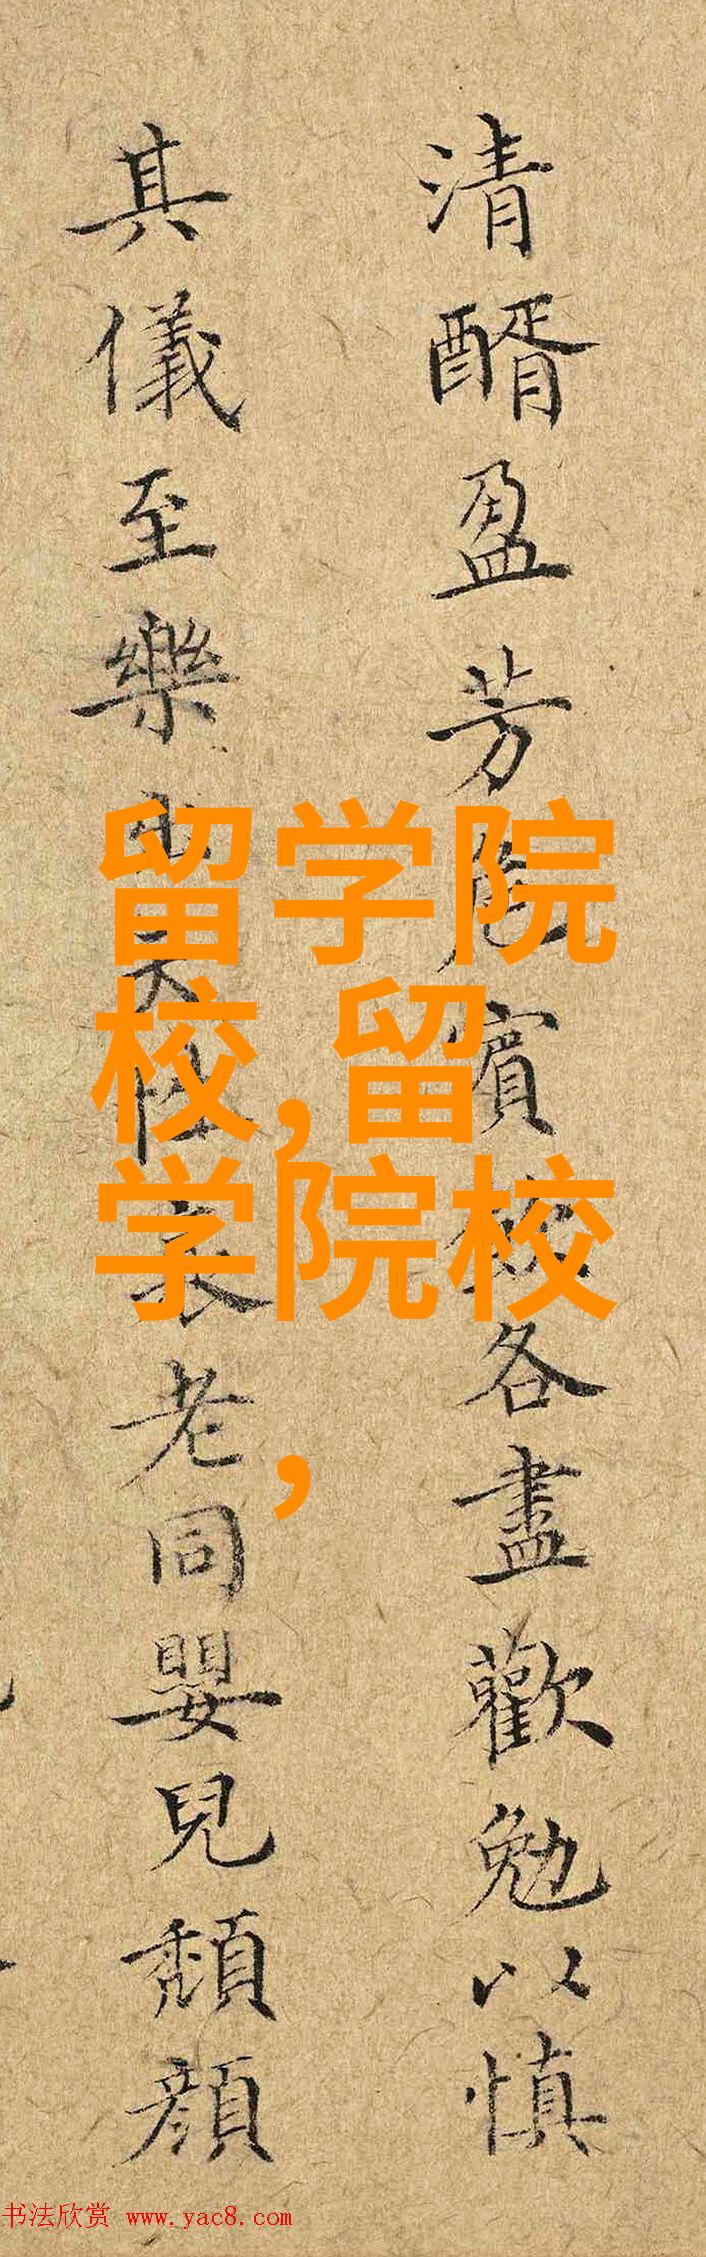 清醑盈芳
賓
各盡歡勉以慎
其儀至樂
老同嬰兒頹顏
留学院
校,留
学院校
,
书法欣赏 www.yac8.com